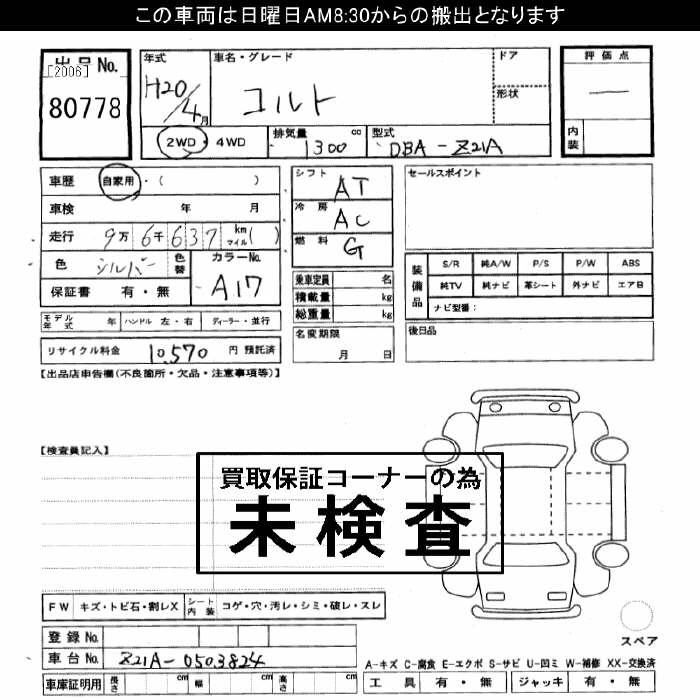 この車両は日曜日AM8:30からの搬出となります
出品No.
[2006]
80778
年式
H20/4月
車名・グレード
コルト
ドア
形状
評価点
—
内装
2WD・4WD
排気量 1300 cc
型式 DBA-Z21A
車歴 自家用・( )
車検 年 月
走行 9万6千637 km マイル( )
色 シルバー 色替
カラーNo. A17
保証書 有・無
シフト AT
冷房 AC
燃料 G
乗車定員 名
積載量 kg
総重量 kg
名変期限
月 日
セールスポイント
装備品
S/R 純A/W P/S P/W ABS
純TV 純ナビ 革シート 外ナビ エアB
ナビ型番:
後日品
モデル年式 年 ハンドル 左・右 ディーラー・並行
リサイクル料金 10,570 円 預託済
【出品店申告欄(不良箇所・欠品・注意事項等)】
【検査員記入】
買取保証コーナーの為
未検査
FW キズ・トビ石・割レX シート内装 コゲ・穴・汚レ・シミ・破レ・スレ
登録No.
車台No. Z21A-0503824
車庫証明用 長さ cm 幅 cm 高さ cm
スペア
A-キズ C-腐食 E-エクボ S-サビ U-凹ミ W-補修 XX-交換済
工具 有・無 ジャッキ 有・無